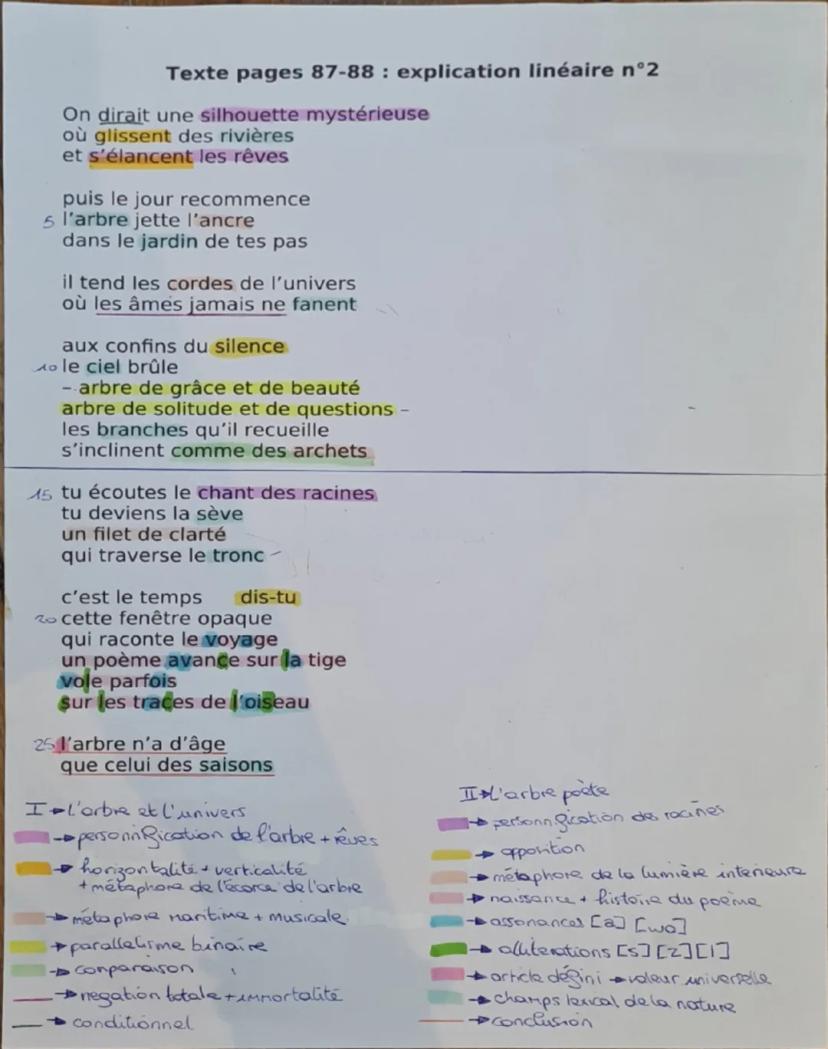 Texte pages 87-88 : explication linéaire n°2
On dirait une silhouette mystérieuse
où glissent des rivières
et s'élancent les rêves
puis le jour recommence
5 l'arbre jette l'ancre
dans le jardin de tes pas
il tend les cordes de l'univers
où les âmes jamais ne fanent
aux confins du silence
10 le ciel brûle
– arbre de grâce et de beauté
arbre de solitude et de questions –
les branches qu'il recueille
s'inclinent comme des archets
15 tu écoutes le chant des racines
tu deviens la sève
un filet de clarté
qui traverse le tronc
c'est le temps dis-tu
20 cette fenêtre opaque
qui raconte le voyage
un poème avance sur la tige
vole parfois
sur les traces de l'oiseau
25 l'arbre n'a d'âge
que celui des saisons
I → L'arbre et l'univers
→ personnification de l'arbre + rêves
→ horizontalité + verticalité
+ métaphore de l'écorce de l'arbre
→ métaphore maritime + musicale
→ parallélisme binaire
→ comparaison
→ négation totale + immortalité
→ conditionnel
II → L'arbre poète
→ personnification des racines
→ opposition
→ métaphore de la lumière intérieure
→ naissance + histoire du poème
→ assonances [a] [wa]
→ allitérations [s] [z] [l]
→ article défini → valeur universelle
→ champs lexical de la nature
→ conclusion